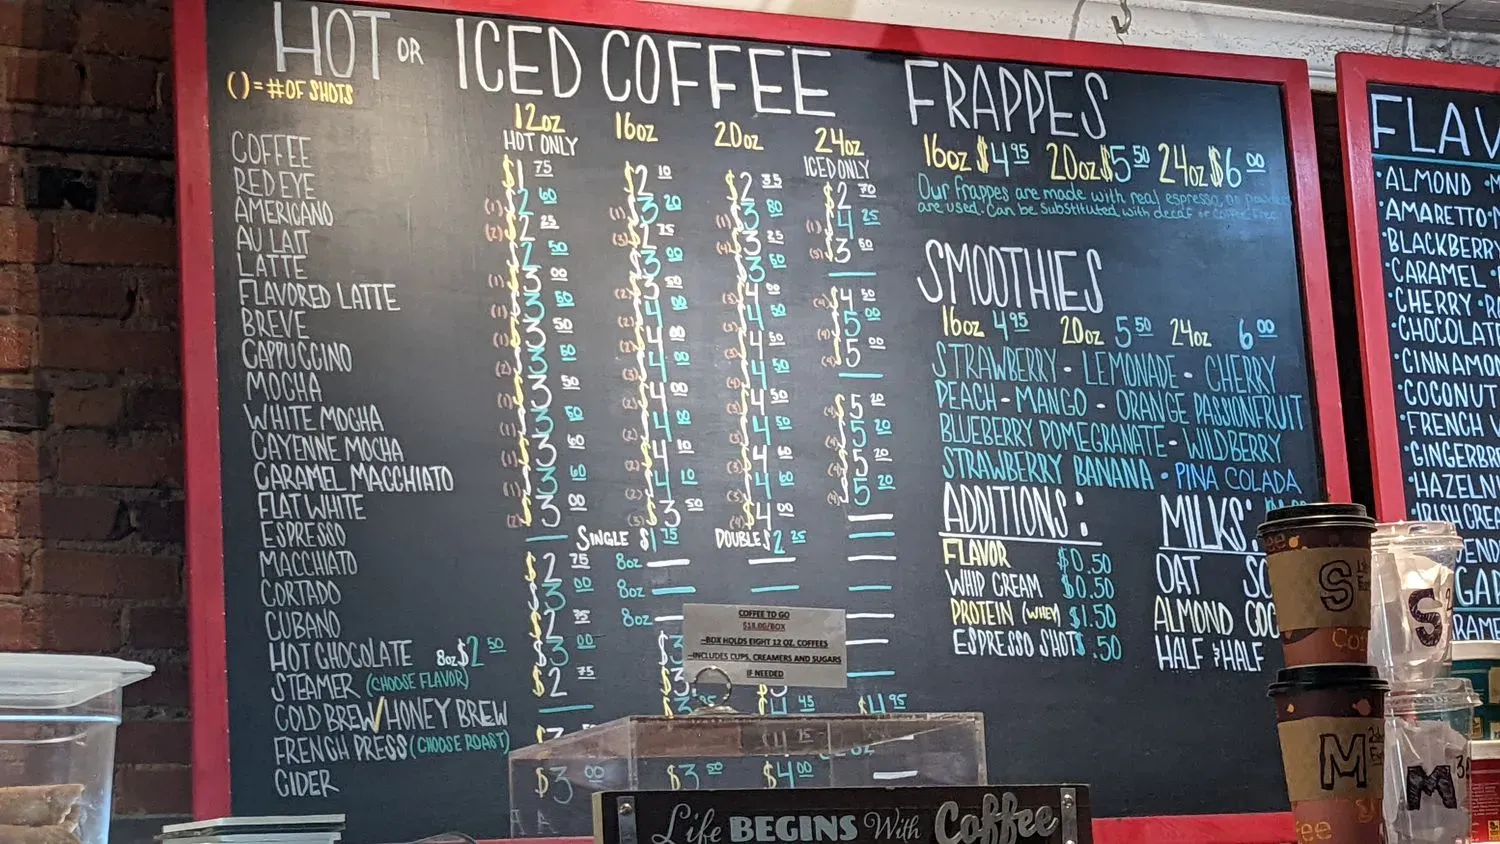 HOT OR ICED COFFEE
() = # OF SHOTS
12oz 16oz 20oz 24oz
HOT ONLY ICED ONLY
COFFEE $1 75 $2 10 $2 35 $2 70
RED EYE (1) $2 60 (1) $3 20 (1) $3 80 (1) $4 25
AMERICANO (2) $2 25 (3) $2 75 (4) $3 25 (5) $3 50
AU LAIT $2 50 $3 00 $3 50
LATTE (1) $3 00 (2) $3 50 (3) $4 00 (4) $4 50
FLAVORED LATTE (1) $3 50 (2) $4 00 (3) $4 50 (4) $5 00
BREVE (1) $3 50 (2) $4 00 (3) $4 50 (4) $5 00
CAPPUCCINO (2) $3 50 (3) $4 00 (4) $4 50
MOCHA (1) $3 50 (2) $4 00 (3) $4 50 (4) $5 20
WHITE MOCHA (1) $3 50 (2) $4 00 (3) $4 50 (4) $5 20
CAYENNE MOCHA (1) $3 60 (2) $4 10 (3) $4 60 (4) $5 20
CARAMEL MACCHIATO (1) $3 60 (2) $4 10 (3) $4 60 (4) $5 20
FLAT WHITE (2) $3 00 (3) $3 50 (4) $4 00
ESPRESSO SINGLE $1 75 DOUBLE $2 25
MACCHIATO $2 75 8oz
CORTADO $3 00 8oz
CUBANO $2 75 8oz
HOT CHOCOLATE 8oz $2 50 $3 00 $3
STEAMER (CHOOSE FLAVOR) $2 75 $3
COLD BREW/HONEY BREW 95 $4 45 $4 95
FRENCH PRESS (CHOOSE ROAST)
CIDER $3 00 $3 50 $4 00
COFFEE TO GO
$18.00/BOX
~BOX HOLDS EIGHT 12 OZ. COFFEES
~INCLUDES CUPS, CREAMERS AND SUGARS
IF NEEDED
Life BEGINS With Coffee
FRAPPES
16oz $4 95 20oz $5 50 24oz $6 00
Our frappes are made with real espresso, no
are used. Can be substituted with decaf or
SMOOTHIES
16oz 4 95 20oz 5 50 24oz 6 00
STRAWBERRY - LEMONADE - CHERRY
PEACH - MANGO - ORANGE PASSIONFRUIT
BLUEBERRY POMEGRANATE - WILDBERRY
STRAWBERRY BANANA - PINA COLADA
ADDITIONS:
FLAVOR $0.50
WHIP CREAM $0.50
PROTEIN (WHEY) $1.50
ESPRESSO SHOT $ .50
MILKS:
OAT SO
ALMOND COC
HALF & HALF
FLAV
• ALMOND
• AMARETTO
• BLACKBERRY
• CARAMEL
• CHERRY
• CHOCOLATE
• CINNAMON
• COCONUT
• FRENCH V
• GINGERBRE
• HAZELN
• IRISH CREA
S
S
M
M